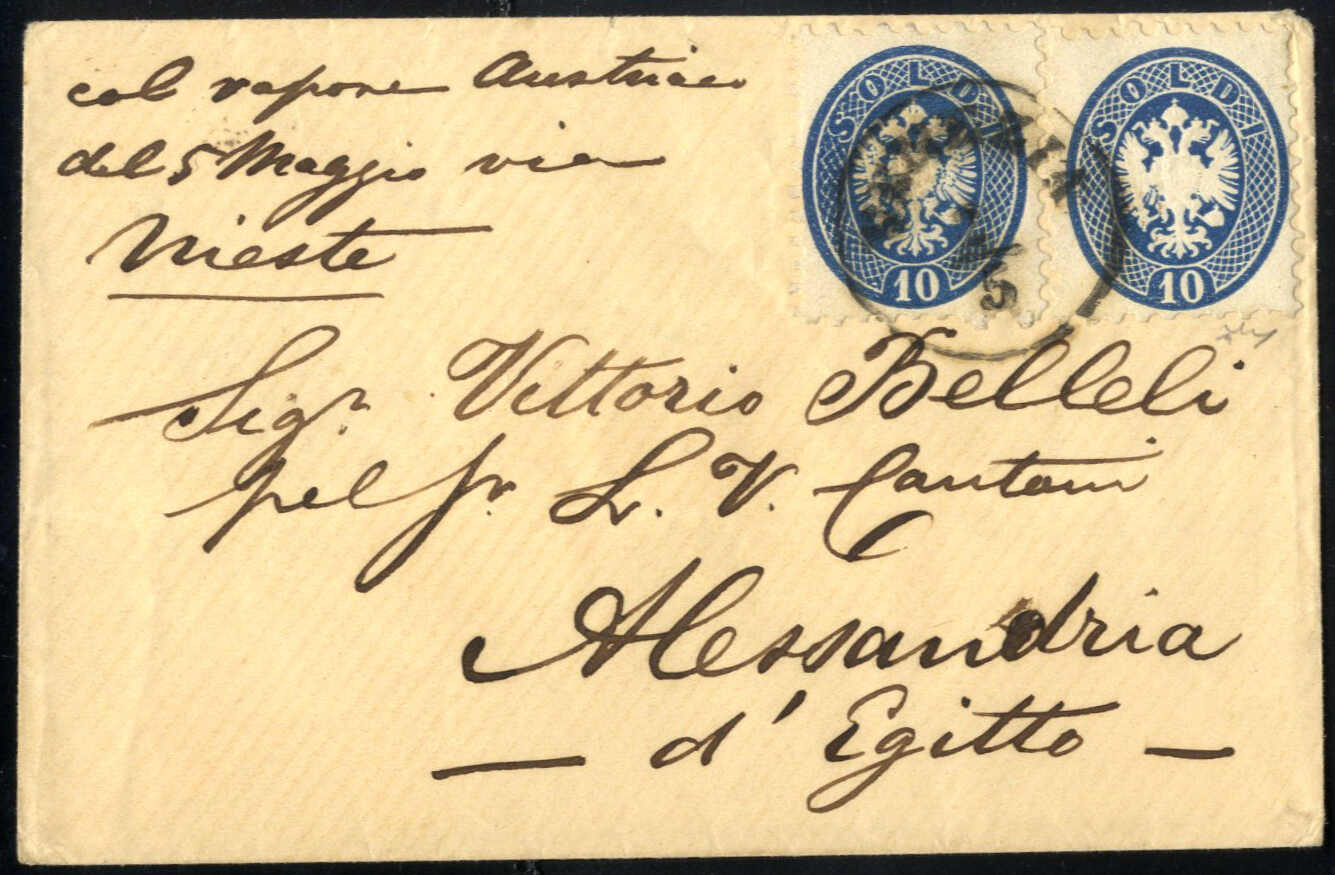 col vapore Austriaco
del 5 Maggio via
Trieste
SOLDI
10
SOLDI
10
Sigr. Vittorio Belleli
pel Sr. L. V. Cantoni
Alessandria
d' Egitto